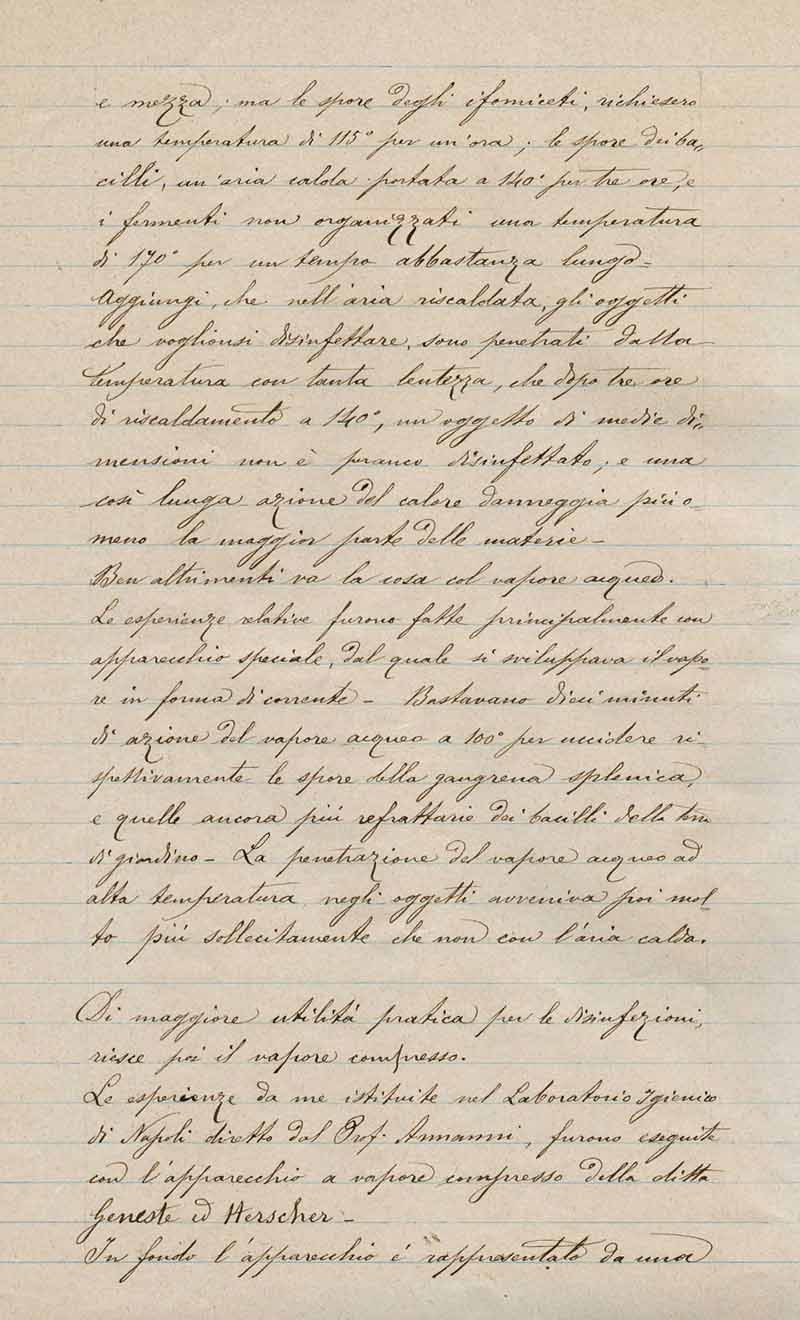 e mezza; ma le spore degli ifomiceti, richiesero
una temperatura di 115° per un'ora; le spore dei ba„
cilli, un'aria calda portata a 140° per tre ore, e
i fermenti non organizzati una temperatura
di 170° per un tempo abbastanza lungo -
Aggiungi, che nell'aria riscaldata, gli oggetti
che voglionsi disinfettare, sono penetrati dalla
temperatura con tanta lentezza, che dopo tre ore
di riscaldamento a 140°, un oggetto di medie di„
mensioni non è peranco disinfettato; e una
così lunga azione del calore danneggia più o
meno la maggior parte delle materie -
Ben altrimenti va la cosa col vapore acqueo.
Le esperienze relative furono fatte principalmente con
apparecchio speciale, dal quale si sviluppava il vapo-
re in forma di corrente - Bastavano dieci minuti
di azione del vapore acqueo a 100° per uccidere ri-
spettivamente le spore della gangrena splenica,
e quelle ancora più refrattarie dei bacilli della terra
di giardino - La penetrazione del vapore acqueo ad
alta temperatura negli oggetti avveniva poi mol
to più sollecitamente che non con l'aria calda.
Di maggiore utilità pratica per le disinfezioni,
riesce poi il vapore compresso.
Le esperienze da me istituite nel Laboratorio Igienico
di Napoli diretto dal Prof. Armanni, furono eseguite
con l'apparecchio a vapore compresso della ditta
Geneste ed Herscher -
In fondo l'apparecchio è rappresentato da una